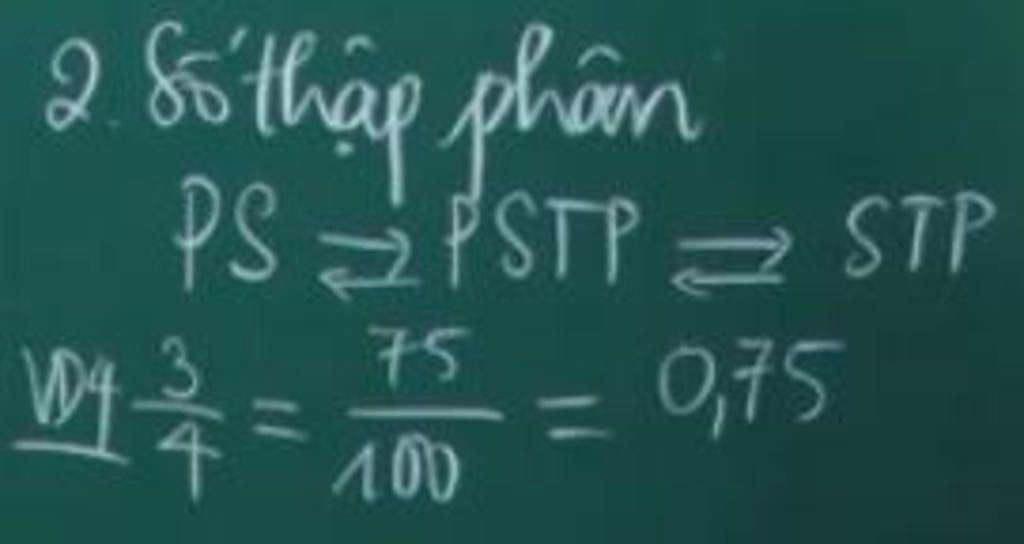 2. Số thập phân
PS ⇄ PSTP ⇄ STP
VD4 3/4 = 75/100 = 0,75